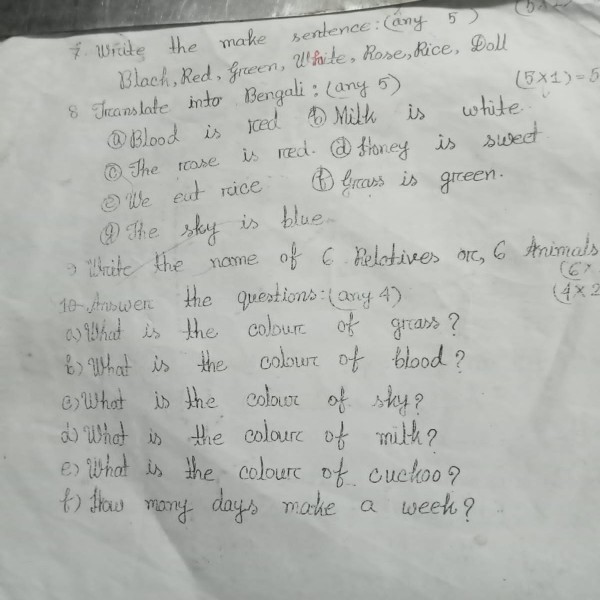 7. Write the make sentence: (any 5) (5×
Black, Red, Green, White, Rose, Rice, Doll
8 Translate into Bengali: (any 5) (5×1)=5
(a) Blood is red (b) Milk is white.
(c) The rose is red. (d) Honey is sweet
(e) We eat rice (f) Grass is green.
(g) The sky is blue
9 Write the name of 6 Relatives or, 6 Animals
(6×
10- Answer the questions: (any 4) (4×2
a) What is the colour of grass?
b) What is the colour of blood?
c) What is the colour of sky?
d) What is the colour of milk?
e) What is the colour of cuckoo?
f) How many days make a week?